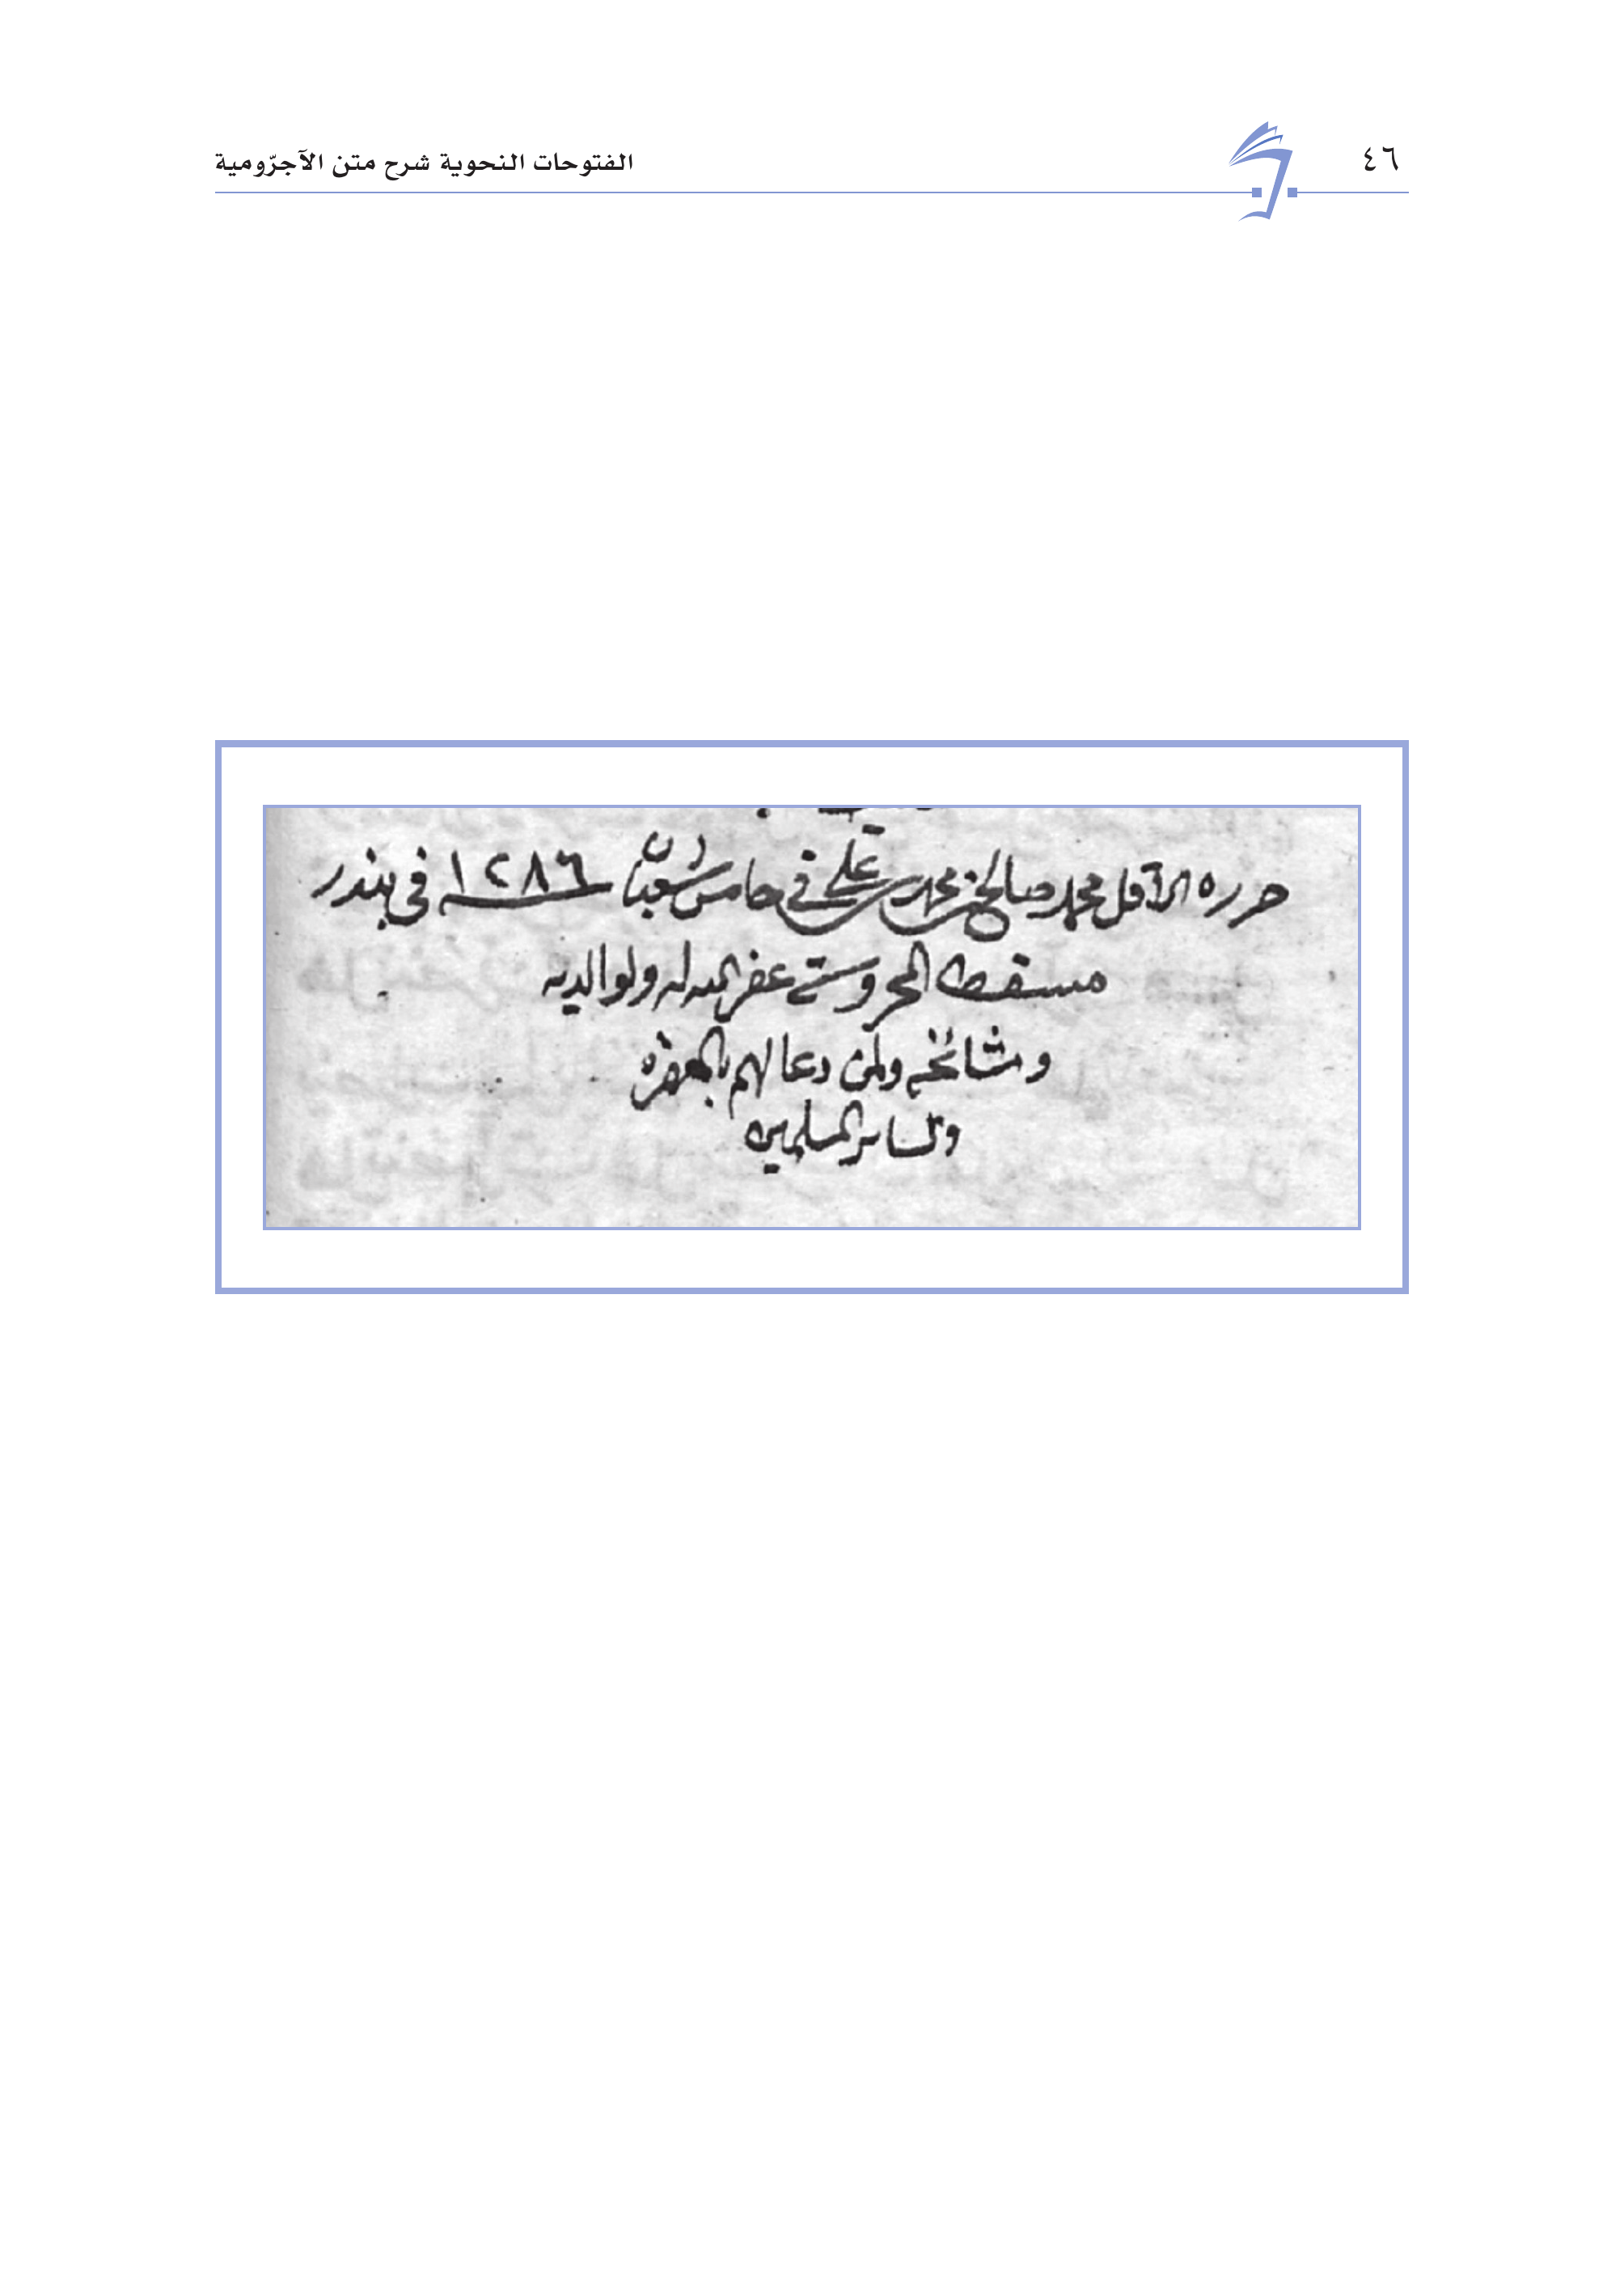 ٤٦
الفتوحات النحوية شرح متن الآجرّومية
حرره الأقل محمد صالح بن محمد علي في خامس شعبان سنة ١٢٨٦ في بندر
مسقط المحروسة غفر الله له ولوالديه
ومشائخه ولمن دعا لهم بالمغفرة
ولسائر المسلمين